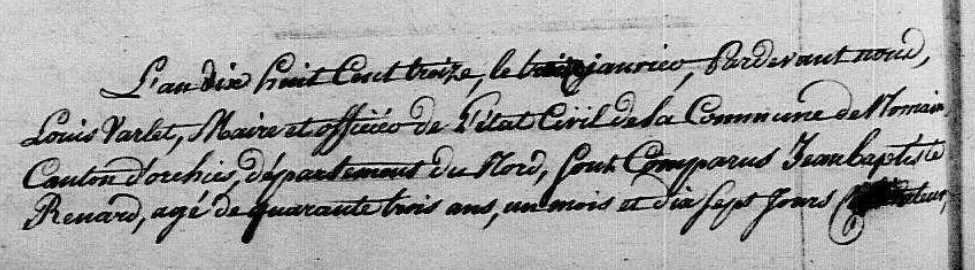 L'an dix huit Cent treize, le janvier, Pardevant nous,
Louis Varlet, Maire et officier de L'état Civil de la Commune de Nomain
Canton d'orchies, département du Nord, sont Comparus Jean baptiste
Renard, agé de quarante trois ans, un mois et dix sept Jours